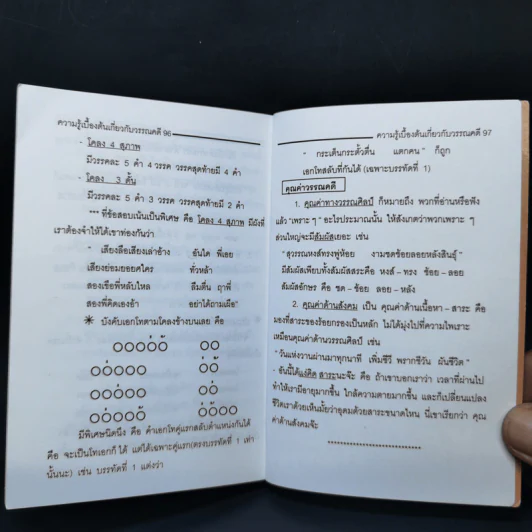 ความรู้เบื้องต้นเกี่ยวกับวรรณคดี 96
- โคลง 4 สุภาพ
มีวรรคละ 5 คำ 4 วรรค วรรคสุดท้ายมี 4 คำ
- โคลง 3 ดั้น
มีวรรคละ 5 คำ 3 วรรค วรรคสุดท้ายมี 2 คำ
*** ที่ข้อสอบเน้นเป็นพิเศษ คือ โคลง 4 สุภาพ มีผังที่
เราต้องจำให้ได้เขาท่องกันว่า
" เสียงลือเสียงเล่าอ้าง อันใด พี่เอย
เสียงย่อมยอยศใคร ทั่วหล้า
สองเขือพี่หลับใหล ลืมตื่น ฤาพี่
สองพี่คิดเองอ้า อย่าได้ถามเผือ"
* บังคับเอกโทตามโคลงข้างบนเลย คือ
มีพิเศษนิดนึง คือ คำเอกโทคู่แรกสลับตำแหน่งกันได้
คือ จะเป็นโทเอกก็ได้ แต่ได้เฉพาะคู่แรก(ตรงบรรทัดที่ 1 เท่า
นั้นนะ) เช่น บรรทัดที่ 1 แต่งว่า
ความรู้เบื้องต้นเกี่ยวกับวรรณคดี 97
- กระเดื่นกระตั้วตื่น แตกคน " ก็ถูก
เอกโทสลับที่กันได้ (เฉพาะบรรทัดที่ 1)
คุณค่าวรรณคดี
1. คุณค่าทางวรรณศิลป์ ก็หมายถึง พวกที่อ่านหรือฟัง
แล้ว "เพราะ ๆ " อะไรประมาณนั้น ให้สังเกตว่าพวกเพราะ ๆ
ส่วนใหญ่จะมีสัมผัสเยอะ เช่น
"สุวรรณหงส์ทรงพู่ห้อย งามชดช้อยลอยหลังสินธุ์ "
มีสัมผัสเพียบทั้งสัมผัสสระคือ หงส์ - ทรง ช้อย - ลอย
สัมผัสอักษร คือ ชด - ช้อย ลอย - หลัง
2. คุณค่าด้านสังคม เป็น คุณค่าด้านเนื้อหา - สาระ คือ
มองที่สาระของร้อยกรองเป็นหลัก ไม่ได้มุ่งไปที่ความไพเราะ
เหมือนคุณค่าด้านวรรณศิลป์ เช่น
"วันแห่งวานผ่านมาทุกนาที เพิ่มชีวี พรากชีวัน มันชีวิต "
- อันนี้ได้แง่คิด สาระนะจ๊ะ คือ ถ้าเขาบอกเราว่า เวลาที่ผ่านไป
ทำให้เรามีอายุมากขึ้น ใกล้ความตายมากขึ้น และก็เปลี่ยนแปลง
ชีวิตเราด้วยเห็นมั้ยว่าอุดมด้วยสาระขนาดไหน นี่เขาเรียกว่า คุณ
ค่าด้านสังคมจ๊ะ